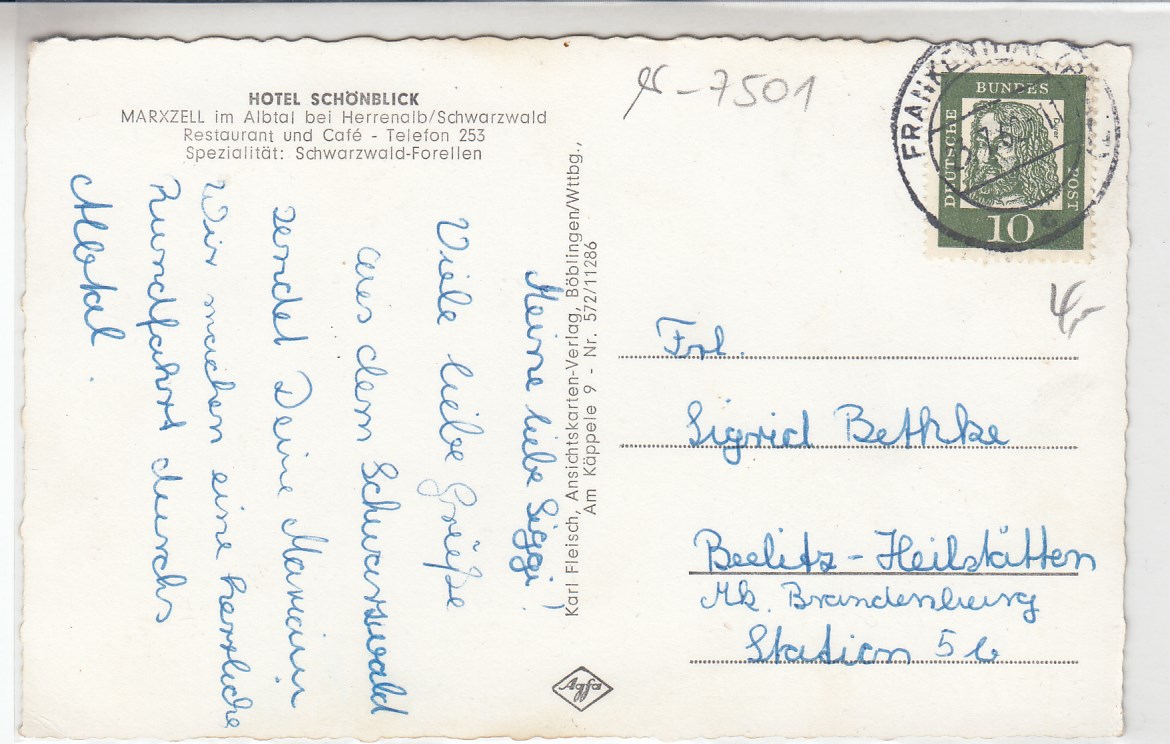 HOTEL SCHÖNBLICK
MARXZELL im Albtal bei Herrenalb/Schwarzwald
Restaurant und Café - Telefon 253
Spezialität: Schwarzwald-Forellen
Meine liebe Siggi!
Viele liebe Grüße
aus dem Schwarzwald
sendet Deine
Wir machen eine herrliche
Rundfahrt durchs
Albtal.
Karl Fleisch, Ansichtskarten-Verlag, Böblingen/Wttbg.,
Am Käppele 9 - Nr. 572/11286
Agfa
-7501
FRANKENTHAL (PFALZ)
DEUTSCHE BUNDES POST
10
4,-
Frl.
Sigrid Bethke
Beelitz-Heilstätten
Mk. Brandenburg
Station 5 b